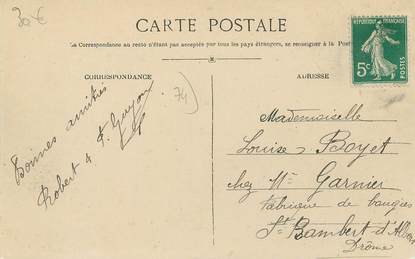 30 €
CARTE POSTALE
La Correspondance au recto n'étant pas acceptée par tous les pays étrangers, se renseigner à la Poste
RÉPUBLIQUE FRANÇAISE
5c
POSTES
CORRESPONDANCE
ADRESSE
74
Bonnes amitiés
Robert &
Mademoiselle
Louise Boyet
chez Mr Garnier
fabrique de bougies
St Rambert d'Albon
Drôme